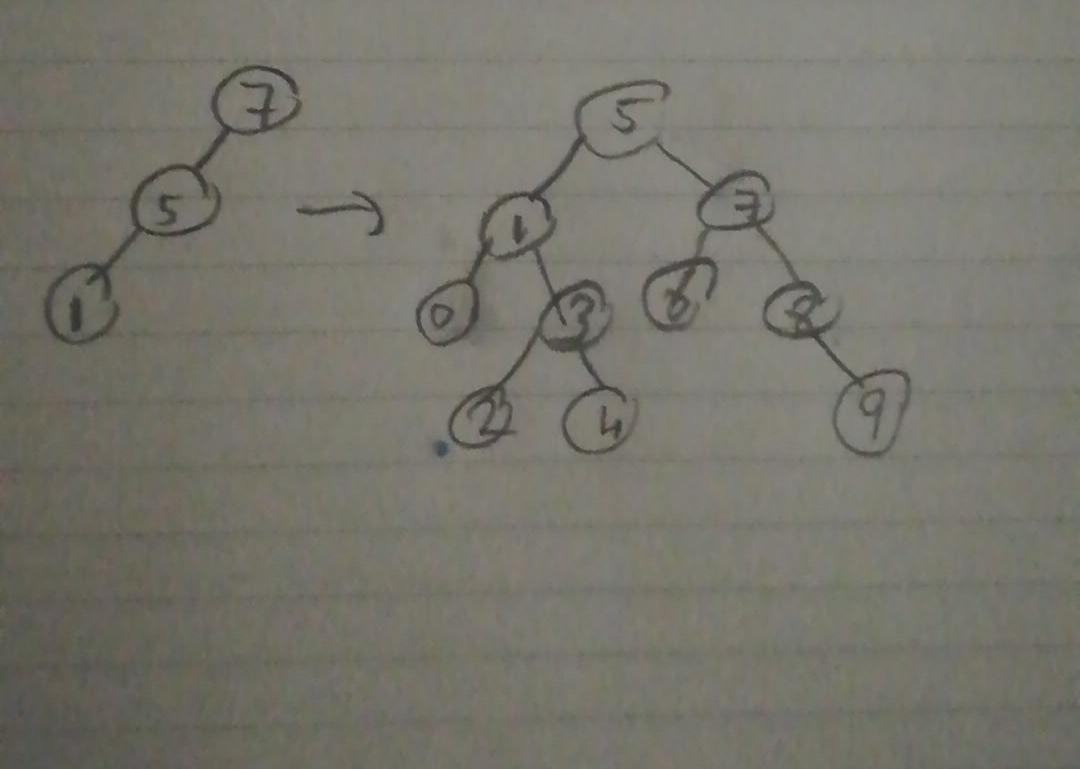 7
5
5 → 1 7
1
0 3 6 8
2 4 9